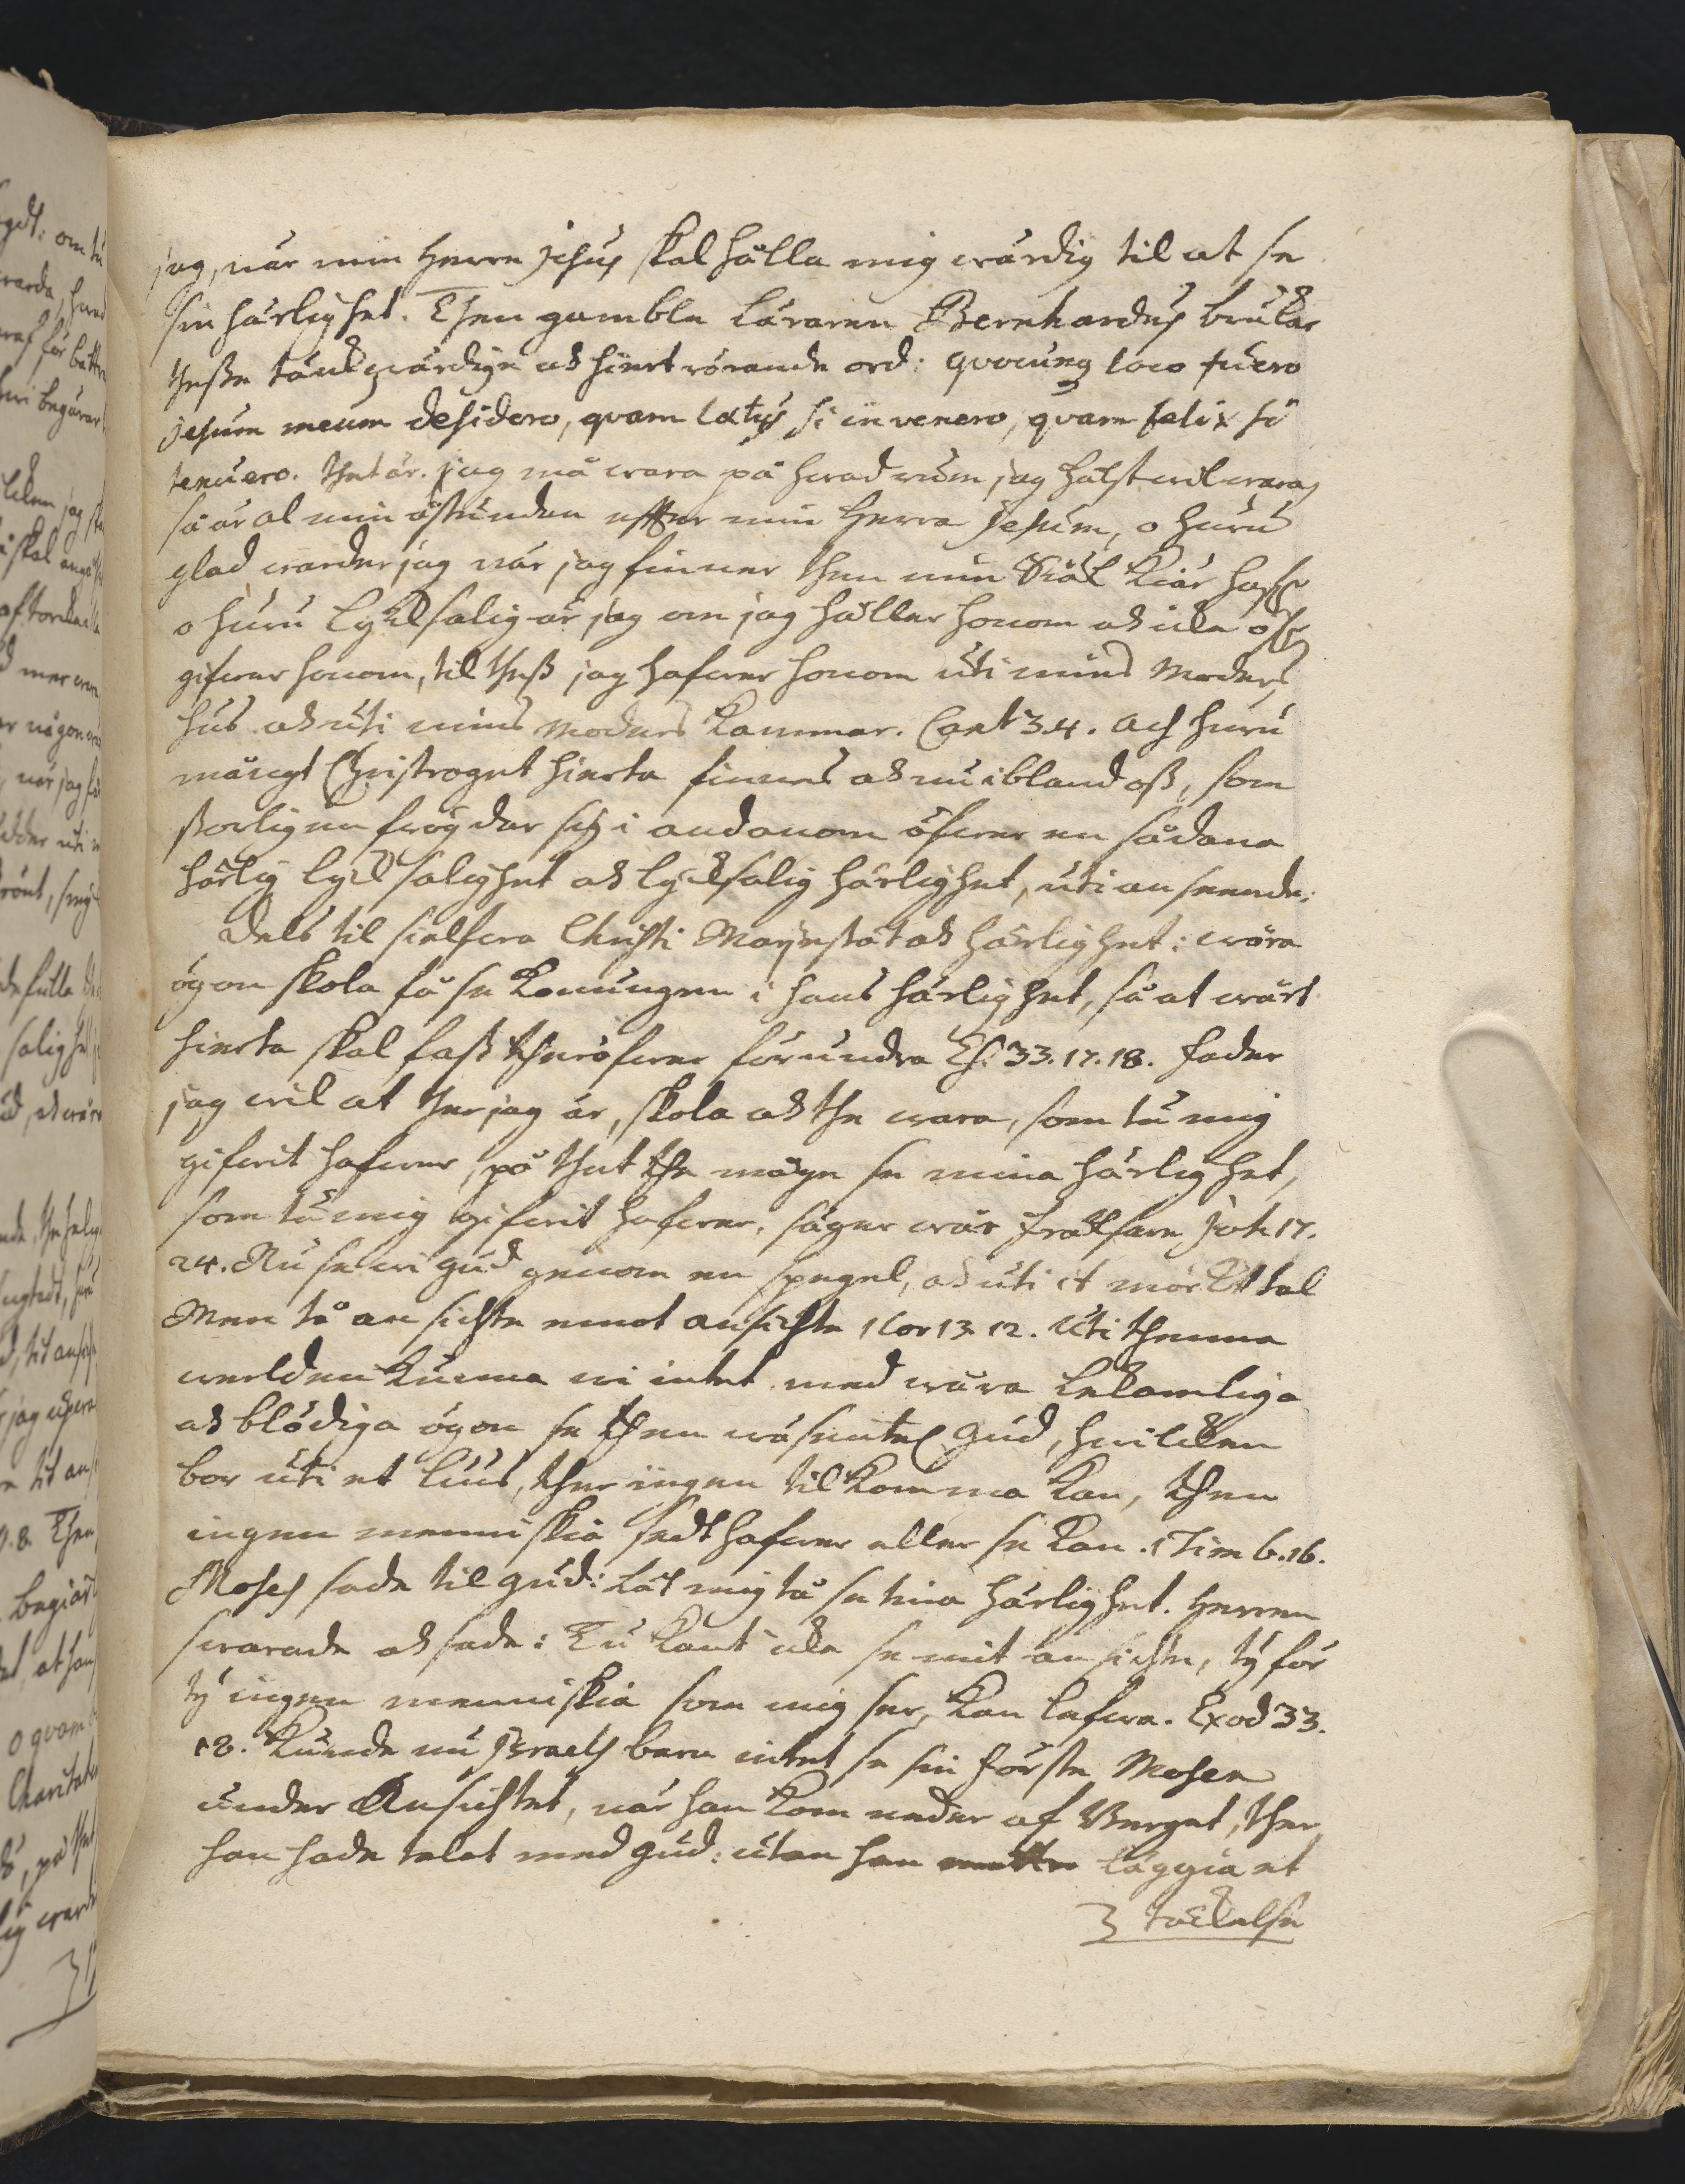 jag, när min Herre Jesus skal hålla mig wärdig til at se
sin härlighet. Then gamble Läraren Bernhardus brukar
thesse tänckwärdige ock hiertrörande ord: qvocunq loco fuero
Jesum meum desidero, qvam lætus si invenero, qvam felix si
tenuero. thet är. jag må wara på hwad rum jag hälst wil wara,
så är al min åstundan effter min Herra Jesum, o huru
glad warder jag när jag finner then min Siäl kiär haf:r
o huru lycksalig är jag om jag håller honom ock icke öf:r
gifwer honom, til thess jag hafwer honom uti mins Moders
hus ock uti mins Moders Kammar. Cant 3.4. Ach huru
mångt Christroget hierta finnes ock nu ibland oss, som
storligen frögdar sig i andanom öfwer en sådana
härlig lycksalighet ock lycksalig härlighet, uti anseende:
Dels til sielfwa Christi Mayestät ock härlighet: wåra
ögon skola få se Konungen i hans härlighet, så at wårt
hierta skal fast theröfwer förundra Es: 33.17.18. Fader
jag wil at ther jag är, skola ock the wara, som tu mig
gifwit hafwer, på thet the måge se mina härlighet,
som tu mig gifwit hafwer, säger wår Frälsare Joh 17.
24. Nu se wi Gud genom en spegel, ock uti it mörckt tal
Men tå ansichte emot ansichte 1 Cor 13. 12. Uti thenna
werlden kunna wi intet med wåra lekamliga
ock blödiga ögon se then wäsentel: Gud, hwilcken
bor uti et lius, ther ingen tilkomma kan, then
ingen menniskia sedt hafwer eller se kan. 1 Tim 6.16.
Moses sade til Gud: Låt mig tå se tina härlighet. Herren
swarade ock sade: Tu kant icke se mit ansichte, ty för
ty ingen menniskia som mig ser, kan lefwa. Exod 33.
18. Kunde nu Israels barn intet se sin Förste Mosen
under Ansichtet, när han kom neder af Berget, ther
han hade talat med Gud: utan han måtte läggia et
täckelse